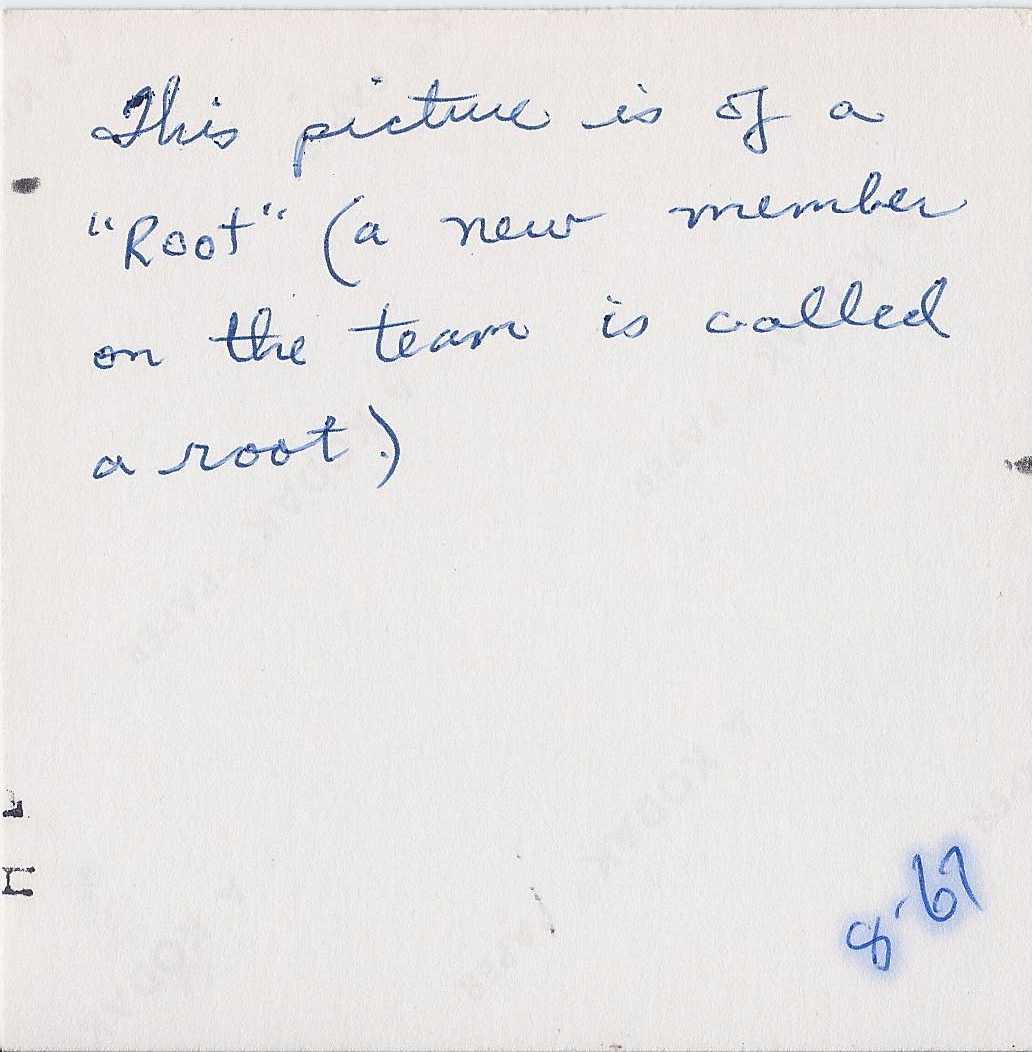 This picture is of a
"Root" (a new member
on the team is called
a root.)
8-67